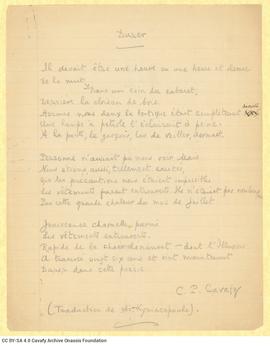 Durer
Il devait être une heure ou une heure et demie
de la nuit.
Dans un coin du cabaret,
Derrière la cloison de bois.
Hormis nous deux la boutique était complètement
Une lampe à pétrole l'éclairait à peine.
A la porte, le garçon, las de veiller, dormait.
Personne n'aurait pu nous voir. Mais
Nous étions aussi, tellement excités,
Que les précautions nous étaient impossibles
Les vêtements furent entr'ouverts. Ils n'étaient pas nombreux
Par cette grande chaleur du mois de Juillet
Jouissance charnelle, parmi
Les vêtements entr'ouverts.
Rapide
A traversé vingt six ans et vint maintenant
Durer dans cette poésie.
C. P. Cavafy
(Traduction de
CC BY-SA 4.0 Cavafy Archive Onassis Foundation